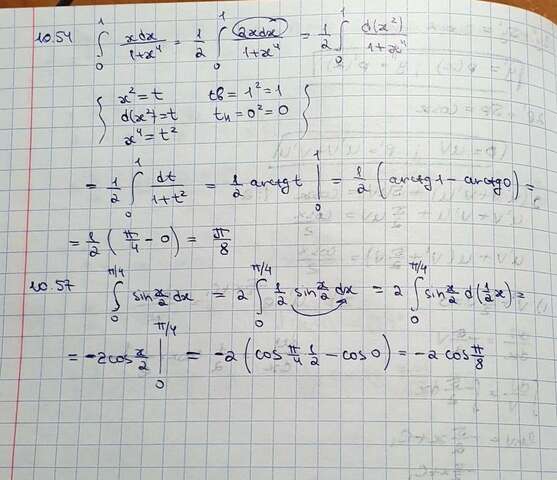 10.54 ∫₀¹ xdx/(1+x⁴) = 1/2 ∫₀¹ 2xdx/(1+x⁴) = 1/2 ∫₀¹ d(x²)/(1+x⁴)
{ x² = t tв = 1² = 1
d(x²) = t tн = 0² = 0
x⁴ = t² }
= 1/2 ∫₀¹ dt/(1+t²) = 1/2 arctg t |₀¹ = 1/2 (arctg1 - arctg0) =
= 1/2 (π/4 - 0) = π/8
10.57 ∫₀^(π/4) sin x/2 dx = 2 ∫₀^(π/4) 1/2 sin x/2 dx = 2 ∫₀^(π/4) sin x/2 d(1/2 x) =
= -2cos x/2 |₀^(π/4) = -2 (cos π/4 1/2 - cos0) = -2 cos π/8